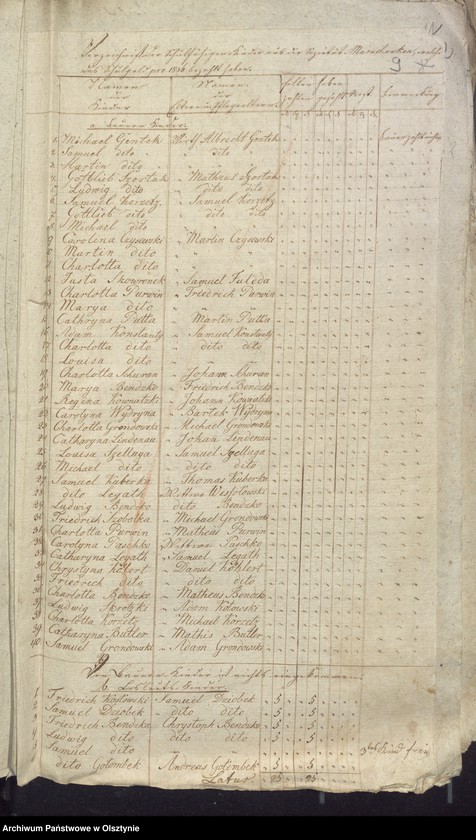 Verzeichniß der Schulfähigen Kinder aus der Societät welche
das Schulgeld pro 1838 bezahlt haben.
9
Namen der Kinder
Namen der Eltern
sollen zahlen
haben gezahlt
Rest
Bemerkung
a. Bauern Kinder
1 Michael Gentek Wirth Albrecht Gentek
2 Samuel dito " dito
3 Martin dito "
4 Gottlieb Szostak " Matheus Szostak
5 Ludwig dito dito dito
6 Samuel Korzetz " Samuel Korzetz
7 Gottlieb dito dito dito
8 Michael dito
9 Carolina Czysewski " Martin Czysewski
10 Martin dito "
11 Charlotta dito "
12 Justa Skowronek " Samuel Fuldda
13 Charlotta Purwin " Friedrich Purwin
14 Marya dito "
15 Cathryna Putta " Martin Putta
16 Adam Konstanty " Samuel Konstanty
17 Charlotta dito " dito dito
18 Louisa dito "
19 Charlotta Skuran " Johann Skuran
20 Marya Bendzko " Friedrich Bendzko
21 Regina Kowalski " Johann Kowalski
22 Carolyna Wydryna " Bartek Wydryna
23 Charlotta Grondowski " Michael Grondowski
24 Catharyna Lindenau " Johan Lindenau
25 Louisa Szelluga " Samuel Szelluga
26 Michael dito " dito dito
27 Samuel Kuberka " Thomas Kuberka
28 dito Legatt Wittwe Wesolowski
29 Ludwig Bendzko dito Bendzko
30 Friedrich Szobotka " Michael Grondowski
31 Charlotta Purwin " Matheus Purwin
32 Carolyna Paschko Wittwe Paschko
33 Catharyna Legath " Samuel Legath
34 Chrystyna Köhlert " Daniel Köhlert
35 Friedrich dito dito dito
36 Charlotta Bendzko " Matheus Bendzko
37 Ludwig " Adam
38 Charlotta Korzetz " Michael Korzetz
39 Catharyna Butler " Mathis Butler
40 Samuel Grondowski " Adam Grondowski
Von Bauern Kinder ist nichts eingekommen
b. Losleute Kinder
1 Friedrich Koslowski Samuel Dziobek 5 5
2 Samuel Dziobek dito dito 5 5
3 Friedrich Bendzko Chrystoph Bendzko 5 5
4 Ludwig dito dito dito 5 5
5 Samuel dito " 3tes Kind frei
dito Golombek Andreas Golombek 5 5
Latus 25 25
Archiwum Państwowe w Olsztynie